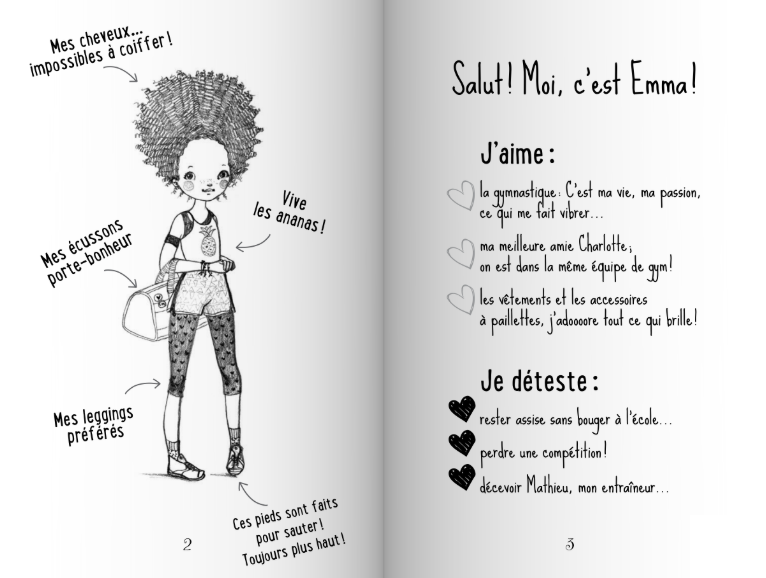 Mes cheveux...
impossibles à coiffer !
Vive
les ananas !
Mes écussons
porte-bonheur
Mes leggings
préférés
Ces pieds sont faits
pour sauter !
Toujours plus haut !
2
Salut ! Moi, c'est Emma !
J'aime :
la gymnastique : C'est ma vie, ma passion,
ce qui me fait vibrer...
ma meilleure amie Charlotte ;
on est dans la même équipe de gym !
les vêtements et les accessoires
à paillettes, j'adoooore tout ce qui brille !
Je déteste :
rester assise sans bouger à l'école...
perdre une compétition !
décevoir Mathieu, mon entraîneur...
3